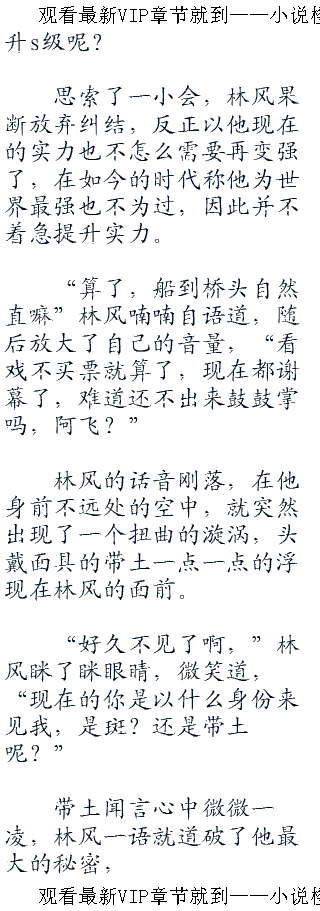 观看最新VIP章节就到——小说
升s级呢？
思索了一小会，林风果
断放弃纠结，反正以他现在
的实力也不怎么需要再变强
了，在如今的时代称他为世
界最强也不为过，因此并不
着急提升实力。
“算了，船到桥头自然
直嘛”林风喃喃自语道，随
后放大了自己的音量，“看
戏不买票就算了，现在都谢
幕了，难道还不出来鼓鼓掌
吗，阿飞？”
林风的话音刚落，在他
身前不远处的空中，就突然
出现了一个扭曲的漩涡，头
戴面具的带土一点一点的浮
现在林风的面前。
“好久不见了啊，”林
风眯了眯眼睛，微笑道，
“现在的你是以什么身份来
见我，是斑？还是带土
呢？”
带土闻言心中微微一
凌，林风一语就道破了他最
大的秘密，
观看最新VIP章节就到——小说